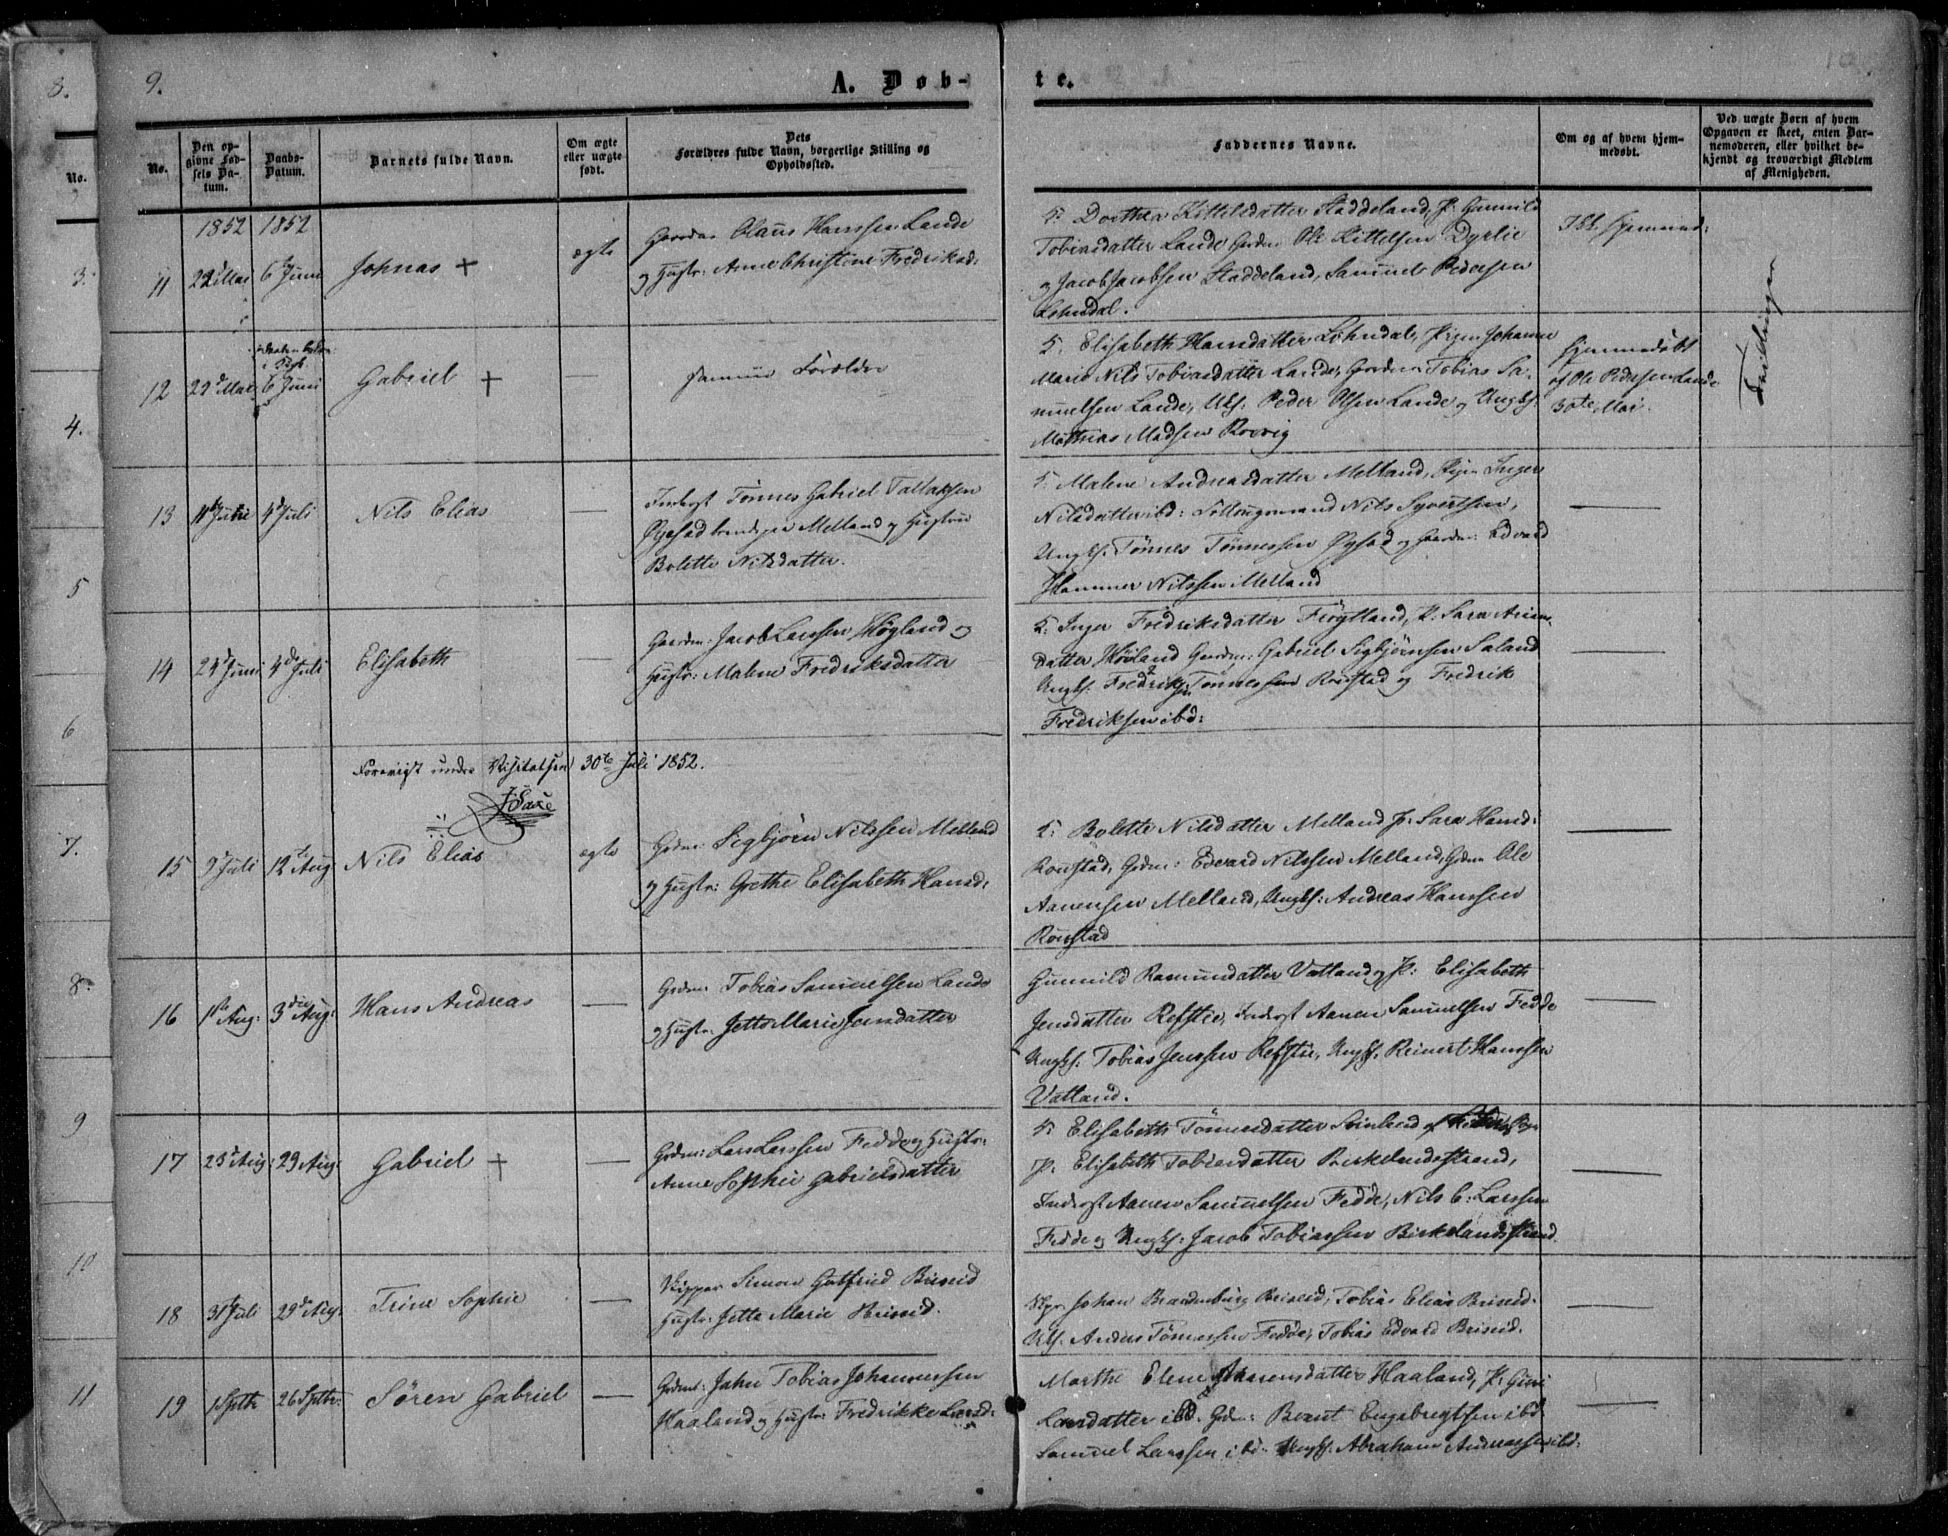 8.
9.
A. Døb-
te.
No.
No.
Den op-
givne Fød-
sels Da-
tum.
Daabs-
Datum.
Barnets fulde Navn.
Om ægte
eller uægte
født.
Dets
Forældres fulde Navn, borgerlige Stilling og
Opholdssted.
Faddernes Navne.
Om og af hvem hjem-
medøbt.
Ved uægte Børn af hvem
Opgaven er skeet, enten Bar-
nemoderen, eller hvilket be-
kjendt og troværdigt Medlem
af Menigheden.
3.
4.
5
6
7.
8.
9
10
11
1852 1852
11 29 Mai 6 Juni Johnas + ægte
Olaus Hanssen Lande
og Hustr: Anne Christine Fredriksd:
F: Dorthea Kittelsdatter Staddeland, P: Gunnild
Tobiasdatter Lande Gdm Ole Kittelsen Dyrlie
og Jacob Jacobsen Staddeland, Samuel Pedersen
Lohndal.
12 29 Mai 6 Juni Gabriel + —
samme Forældre
F: Elisabeth Hansdatter Lohndal, Pigen Johanne
Marie Nils Tobiasdatter Lande, Gaardm Tobias Sa-
muelsen Lande, Ukf. Peder Olsen Lande og Ungkf.
Mathias Madsen Rørvig
Hjemmedøbt
af Ole Pedersen Lande
30te Mai.
Tvillinger
13 Juni 4 Juli Nils Elias —
Inderst Tønnes Gabriel Tallaksen
Øysad Melland og Hustru
Bolette Nilsdatter.
F: Malene Andreasdatter Melland, Pigen Inger
Nilsdatter ibd: Nils Syvertsen,
Ungkf. Tønnes Tønnessen Øysad og Gaardm: Edvard
Hammer Nilssen Melland
14 24 Juni 4 Juli Elisabeth —
Gaardm: Jacob Larssen Høyland og
Hustr: Malene Fredriksdatter
F: Inger Fredriksdatter Frøytland, P: Sara
datter Høiland Gaardm: Gabriel Sigbjørnsen Saland
Ungkf. Fredrik Tønnessen Rørstad og Fredrik
Fredriksen ibd:
Forevist under Visitatsen 30te Juli 1852.
15 9 Juli 12 Aug Nils Elias ægte
Grdm: Sigbjørn Nilssen Melland
og Hustr: Grethe Elisabeth Hansd:
F: Bolette Nilsdatter Melland P: Sara Hansd:
Rørstad, Grdm: Edvard Nilssen Melland, Grdm Ole
Aanensen Melland, Ungkf: Andreas Hanssen
Rørstad
16 1 Aug: 3die Aug: Hans Andreas —
Grdm: Tobias Samuelsen Lande
og Hustr: Jette Marie Jensdatter
Gunnild Ramunsdatter Vatland og P: Elisabeth
Jensdatter Refstie, Inderst Aanen Samuelsen Fedde
Ungkf. Tobias Jenssen Refstie, Ungkf. Reinert Hanssen
Vatland.
17 23 Aug: 29 Aug: Gabriel + —
Grdm: Lars Larssen Fedde og Hustr:
Anne Sophie Gabrielsdatter
F: Elisabeth Tønnesdatter
P: Elisabeth Tobiasdatter Birkelandsstrand,
Inderst Aanen Samuelsen Fedde, Nils C: Larssen
Fedde og Ungkf: Jacob Tobiassen Birkelandsstrand
18 31 Juli 29 Aug: Trine Sophie —
Skipper Simon Gotfried Briseid
Hustr: Jette Marie Briseid.
Skpr. Johan Brandenburg Briseid, Tobias Elias Briseid.
Ukf. Anders Tønnessen Fedde, Tobias Edvard Briseid.
19 1 Septbr 26 Septbr: Søren Gabriel —
Grdm: Jahn Tobias Johannessen
Haaland og Hustr: Fredrikke Larsd:
Marthe Elene Haaland, P:
Larsdatter ibd. Gdm: Berent Engebregtsen ibd
Samuel Larssen ibd: Ungkf. Abraham Andreassen ibd: